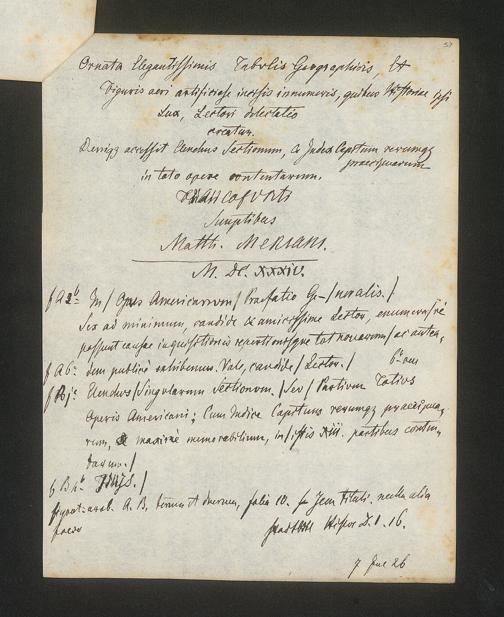 Ornata Elegantissimis Tabulis Geographicis, Et
Figuris aeri artificiose incisis innumeris, quibus Historiae ipsi
Lux, Lectori delectatio
creatur.
Deniq3 accessit Elenchus Sectionum, & Index Capitum rerumq3
praecipuarum
in toto opere contentarum.
FRANCOFURTI
Sumptibus
Matth. MERIANI.
M. DC. XXXIV.
f A 2 b: In / Opus Americanum / Praefatio Ge= / neralis. /
Sex ad minimum, candide & amicissime Lector, enumera / re
possunt causae inquisitionis repertionisque tot novarum / ac antea,
f A 6: dem publicè exhibemus. Vale, candide / Lector. /
Elenchus / Singularum Sectionum. / Seu / Partium Totius
Operis Americani; Cum Indice Capitum rerumq3 praecipua,
rum, & maximè memorabilium, in / istis XIII. partibus conten,
tarum. /
FINIS. /
A. B. folia 10. nulla alia
I. 16.
26